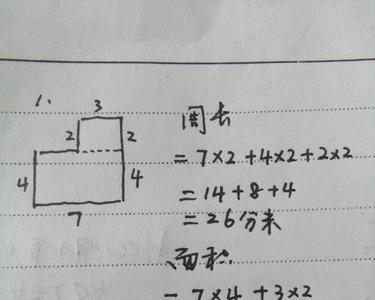 1.
3
2 2
4 4
7
周长
= 7×2+4×2+2×2
= 14+8+4
= 26分米
面积
= 7×4+3×2